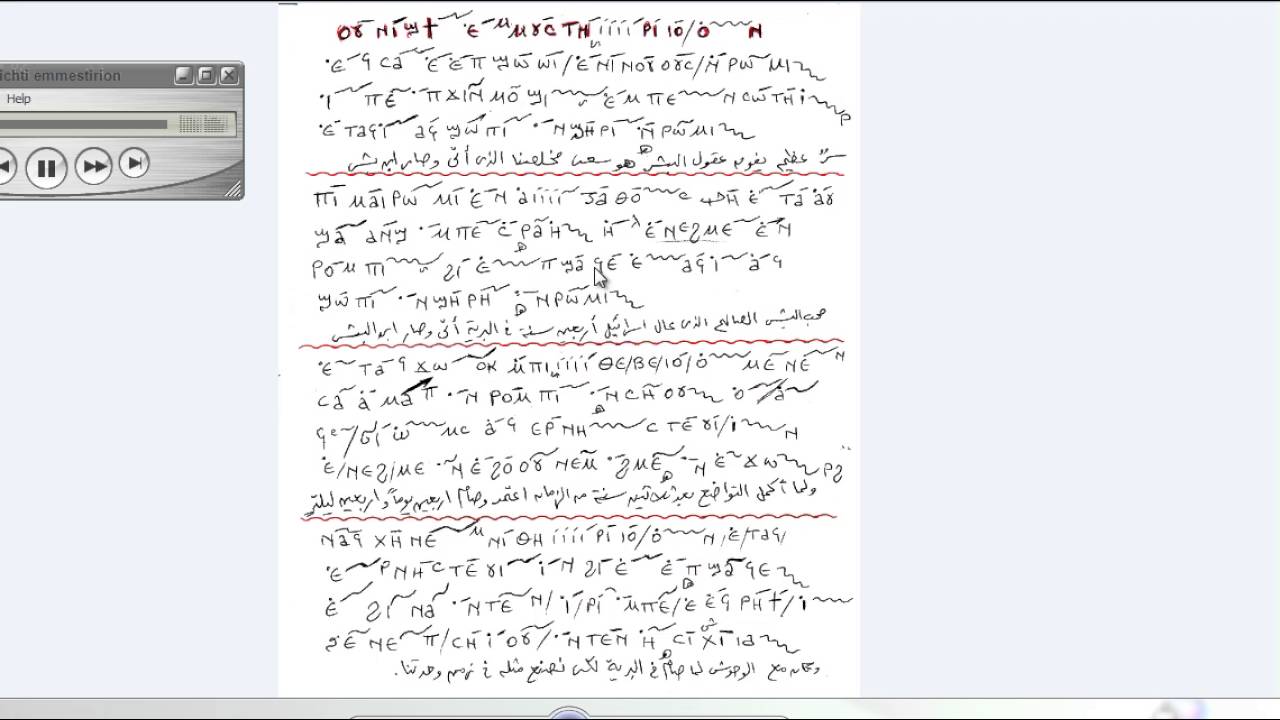 ichti emmestirion
Help
ⲟⲩ ⲛⲓϣϯ ⲉ ⲙⲙⲩⲥⲧⲏ ⲓⲓⲓⲓ ⲣⲓ ⲓⲟ/ⲟ ⲛ
ⲉ ϥ ⲥⲁ ⲉ ⲉ ⲡ ϣⲱ ⲱⲓ/ⲉ ⲛⲓ ⲛⲟⲩ ⲟⲩⲥ/ⲛ ⲣⲱ ⲙⲓ
ⲓ ⲡⲉ ⲡϫⲓⲛ ⲙⲟ ϣⲓ ⲉ ⲙ ⲡⲉ ⲛ ⲥⲱⲧⲏ ⲓ ⲣ
ⲉ ⲧⲁϥⲓ ⲁϥ ϣⲱ ⲡⲓ ⲛ ϣⲏ ⲣⲓ ⲛ ⲣⲱ ⲙⲓ
سرٌ عظيم يفوق عقول البشر هو سعى مخلصنا الذى أتى وصار ابن بشر
ⲡⲓ ⲙⲁⲓ ⲣⲱ ⲙⲓ ⲉ ⲛ ⲁ ⲓⲓⲓⲓ ⲅⲁ ⲑⲟ ⲥ ⲫⲏ ⲉ ⲧⲁ ⲁⲩ
ϣⲁ ⲁⲛϣ ⲙ ⲡⲉ ⲥ ⲣⲁ ⲏ ⲏ ⲗ ⲉ ⲛⲉϩⲙⲉ ⲉ ⲛ
ⲣⲟⲙ ⲡⲓ ϩⲓ ⲉ ⲡ ϣⲁ ϥⲉ ⲉ ⲁϥⲓ ⲁ ϥ
ϣⲱ ⲡⲓ ⲛ ϣⲏ ⲣⲏ ⲛ ⲣⲱ ⲙⲓ
محب البشر الصالح الذى عال اسرائيل أربعين سنة فى البرية أتى وصار ابن البشر
ⲉ ⲧⲁ ϥ ϫⲱ ⲟⲕ ⲙ ⲡⲓ ⲓⲓⲓⲓ ⲑⲉ/ⲃⲉ/ⲓⲟ/ⲟ ⲙⲉ ⲛⲉ ⲛ
ⲥⲁ ⲁ ⲙⲁ ⲡ ⲛ ⲣⲟⲙ ⲡⲓ ⲛ ⲥⲏ ⲟⲩ ⲟ/ⲁ
ϥⲉ/ϭⲓ ⲱ ⲙⲥ ⲁ ϥ ⲉⲣⲛⲏ ⲥ ⲧⲉ ⲩⲓ/ⲓ ⲛ
ⲉ/ⲛⲉϩ/ⲙⲉ ⲛ ⲉ ϩⲟ ⲟⲩ ⲛⲉⲙ ϩⲙⲉ ⲛ ⲉ ϫⲱ ⲣϩ
ولما أكمل التواضع بعد ثلاثين سنة من الزمان اعتمد وصام اربعين يوماً واربعين ليلة
ⲛⲁϥ ⲭⲏ ⲛⲉ ⲙ ⲛⲓ ⲑⲏ ⲓⲓⲓⲓ ⲣⲓ ⲓⲟ/ⲟ ⲛ/ⲉ/ⲧⲁϥ/
ⲉ ⲣⲛⲏⲥⲧⲉ ⲩⲓ ⲓⲛ ϩⲓ ⲉ ⲉ ⲡ ϣⲁ ϥⲉ
ⲉ ϩⲓ ⲛⲁ ⲛⲧⲉ ⲛ/ⲓ/ⲣⲓ ⲙⲡⲉ/ⲉ ⲉϥ ⲣⲏϯ/ⲓ
ϩⲉ ⲛⲉ ⲡ/ⲥⲏ ⲓ ⲟⲩ/ ⲛ ⲧⲉⲛ ⲏ ⲥⲓ ⲭⲓ ⲓⲁ
وكان مع الوحوش لما صام فى البرية لكى نصنع مثله فى زمن وحدتنا.